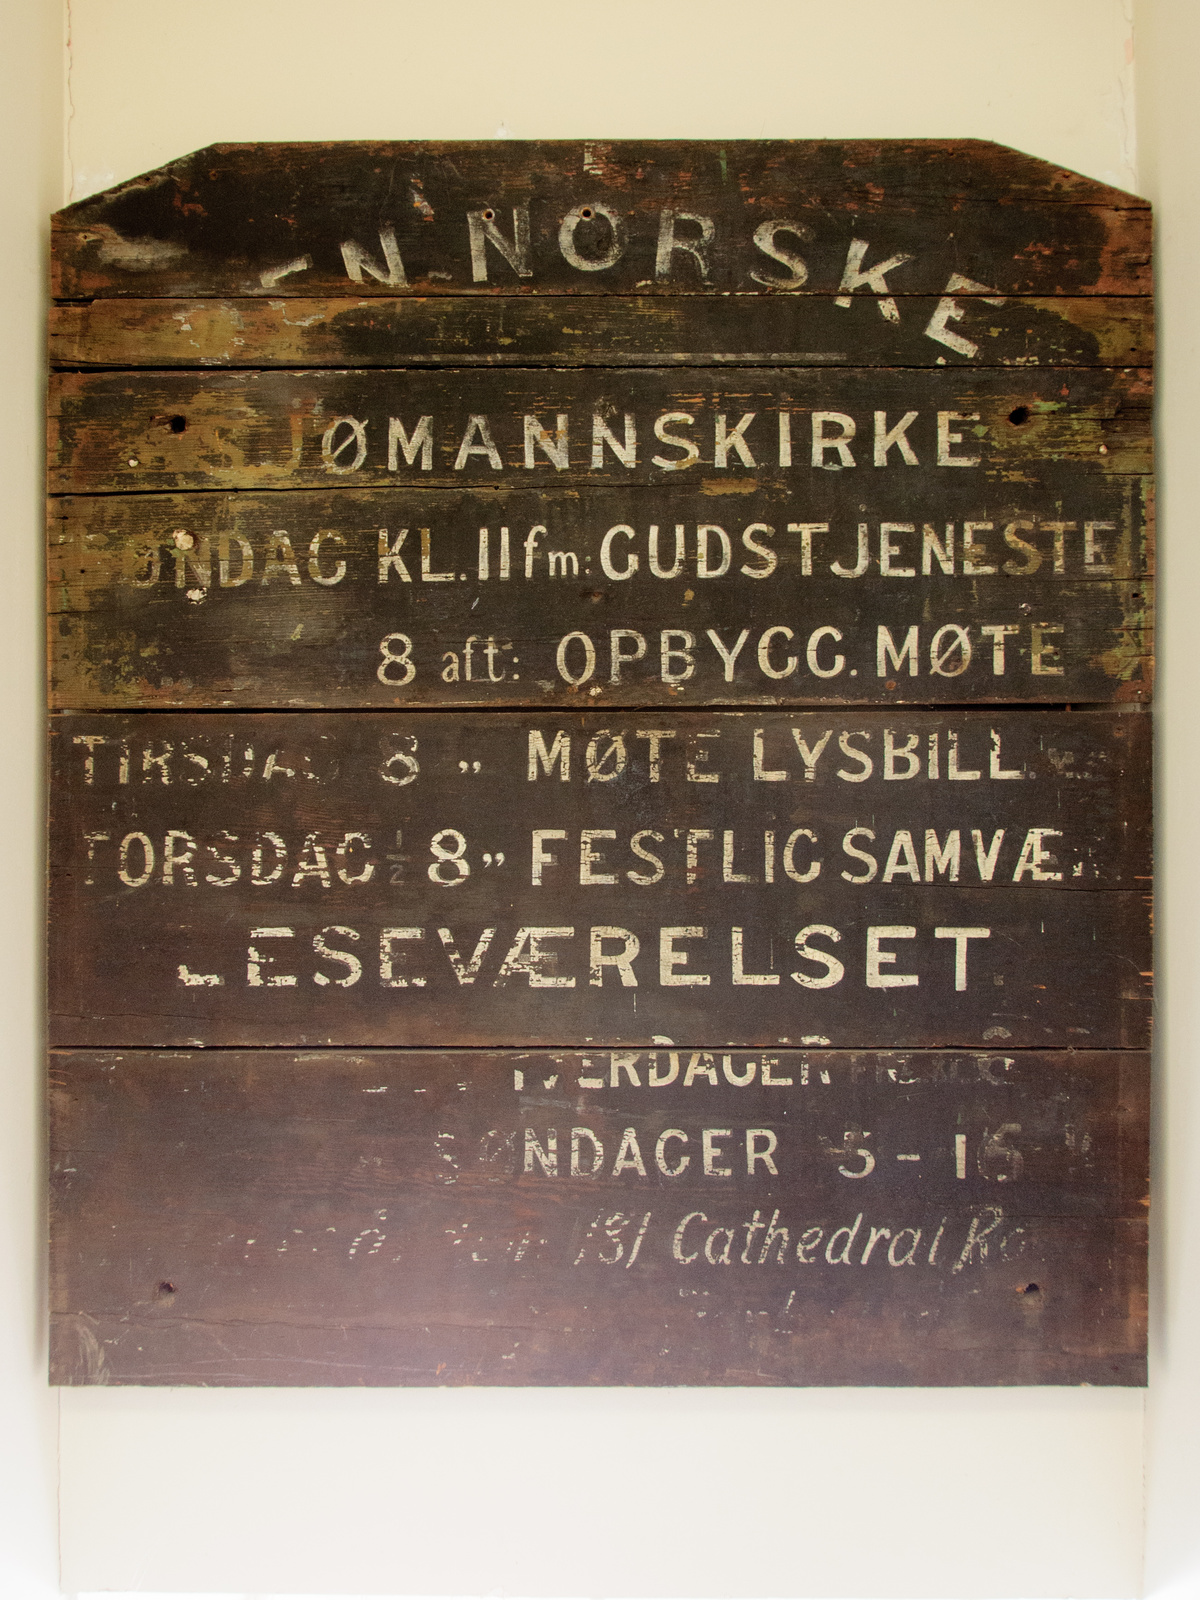 DEN NORSKE
SJØMANNSKIRKE
SØNDAG KL. 11 fm: GUDSTJENESTE
8 aft: OPBYGG. MØTE
TIRSDAG 8 „ MØTE LYSBILL.
TORSDAG ½ 8 „ FESTLIG SAMVÆR
LESEVÆRELSET
HVERDAGER
SØNDAGER 5 - 16
Cathedral